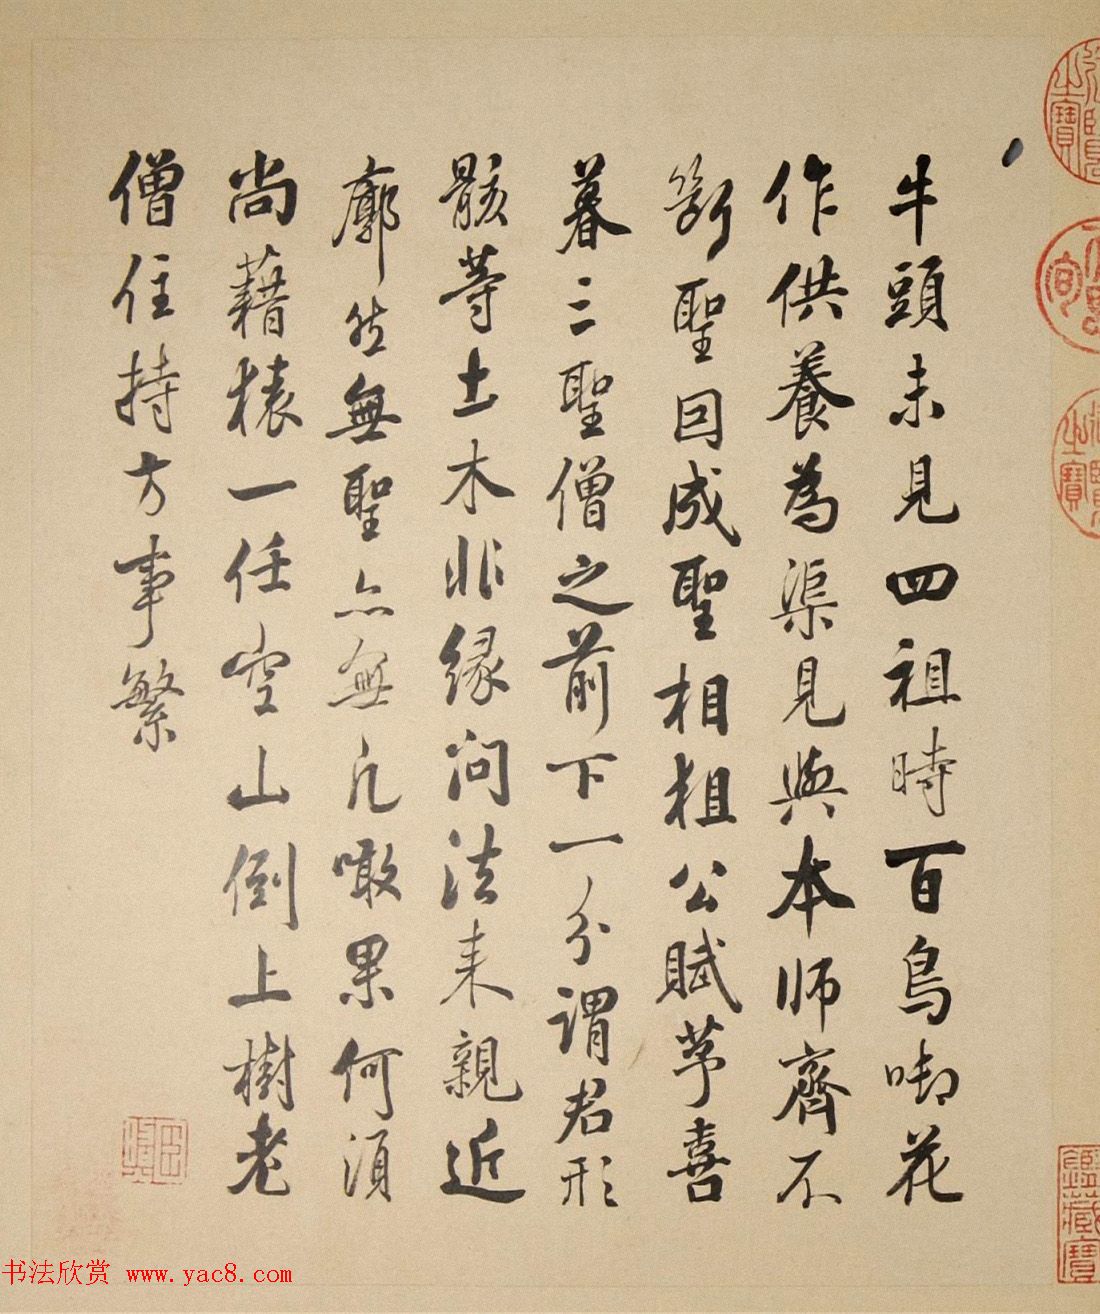 牛頭未見四祖時百鳥啣花
作供養為渠見與本師齊不
斷聖因成聖相狙公賦芧喜
暮三聖僧之前下一分謂君形
骸等土木非緣問法來親近
廓然無聖亦無凡噉果何須
尚藉猿一任空山倒上樹老
僧住持方事繁
鑑藏寶
书法欣赏 www.yac8.com